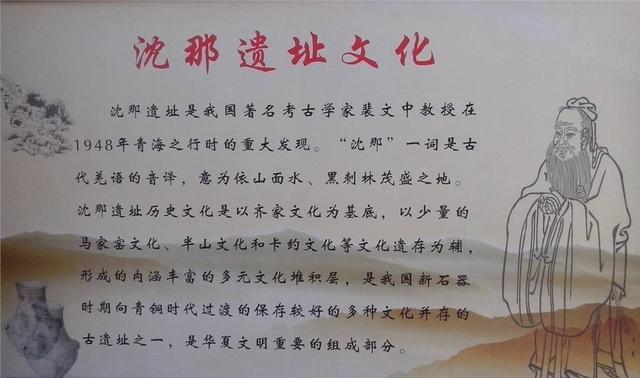 沈那遗址文化
沈那遗址是我国著名考古学家裴文中教授在
1948年青海之行时的重大发现。“沈那”一词是古
代羌语的音译，意为依山面水、黑刺林茂盛之地。
沈那遗址历史文化是以齐家文化为基底，以少量的
马家窑文化、半山文化和卡约文化等文化遗存为辅，
形成的内涵丰富的多元文化堆积层，是我国新石器
时期向青铜时代过渡的保存较好的多种文化并存的
古遗址之一，是华夏文明重要的组成部分。